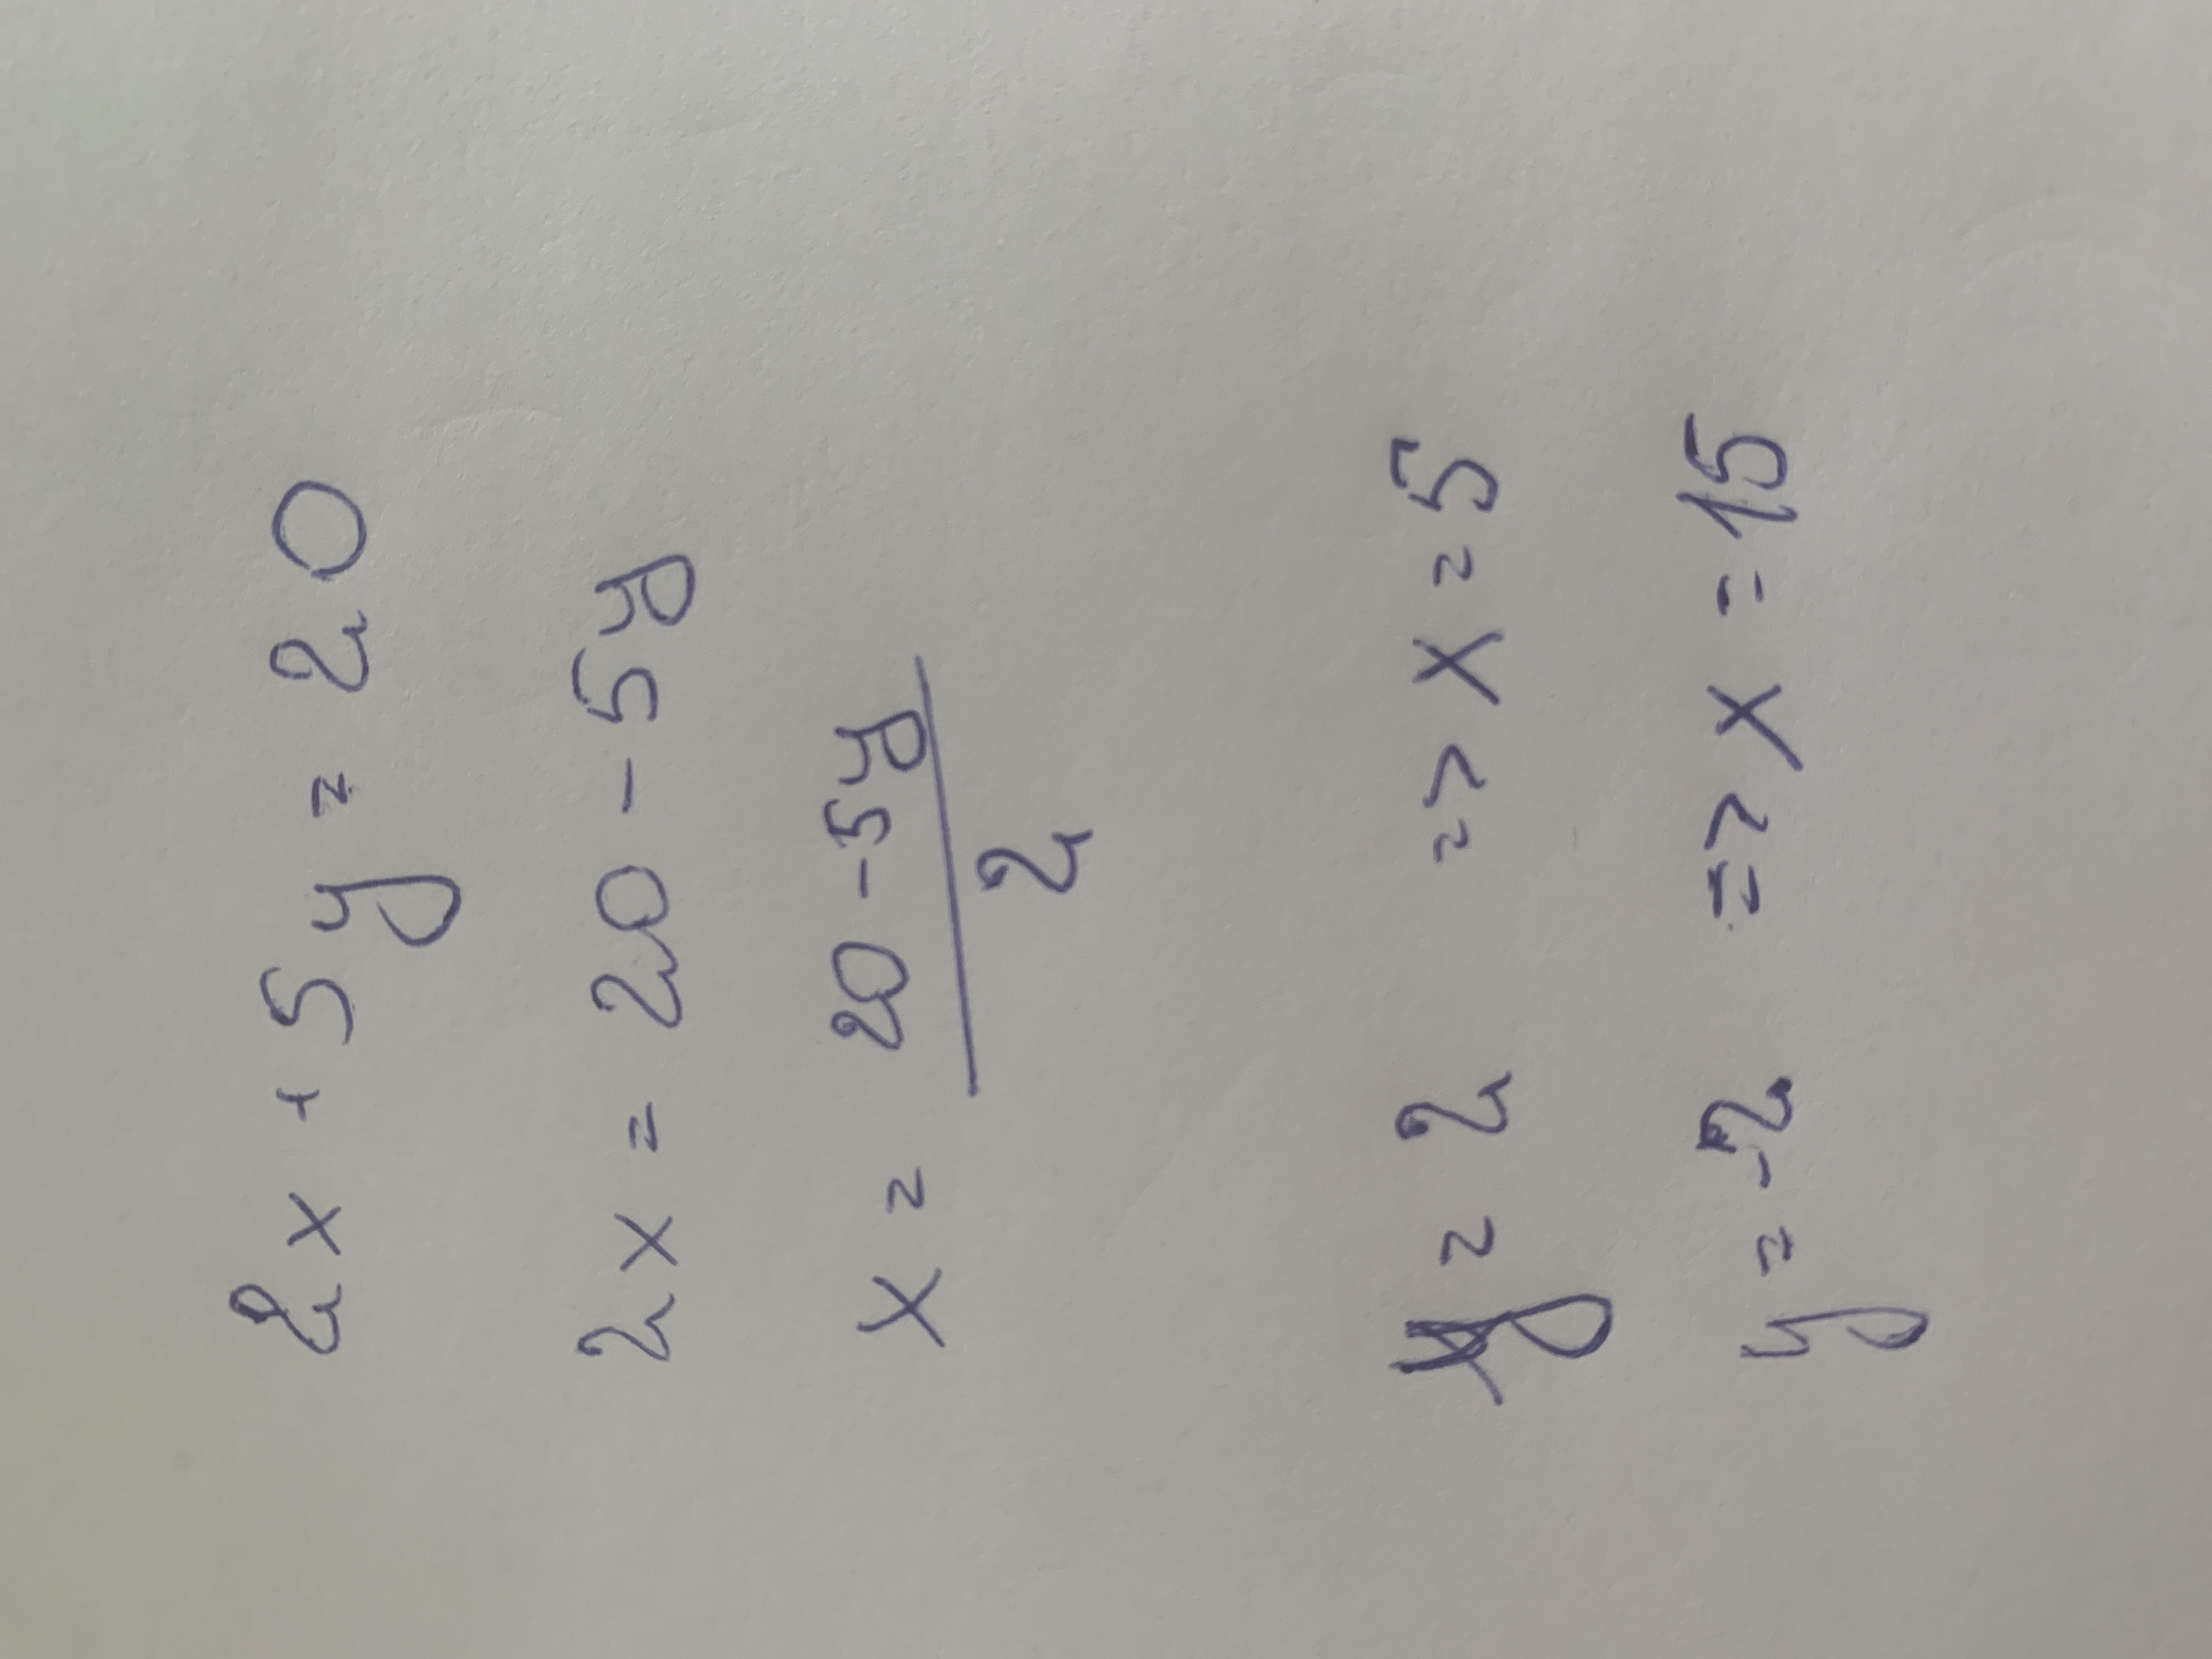 2x + 5y = 20
2x = 20 - 5y
x = 20 - 5y
2
y = 2 => x = 5
y = -2 => x = 15